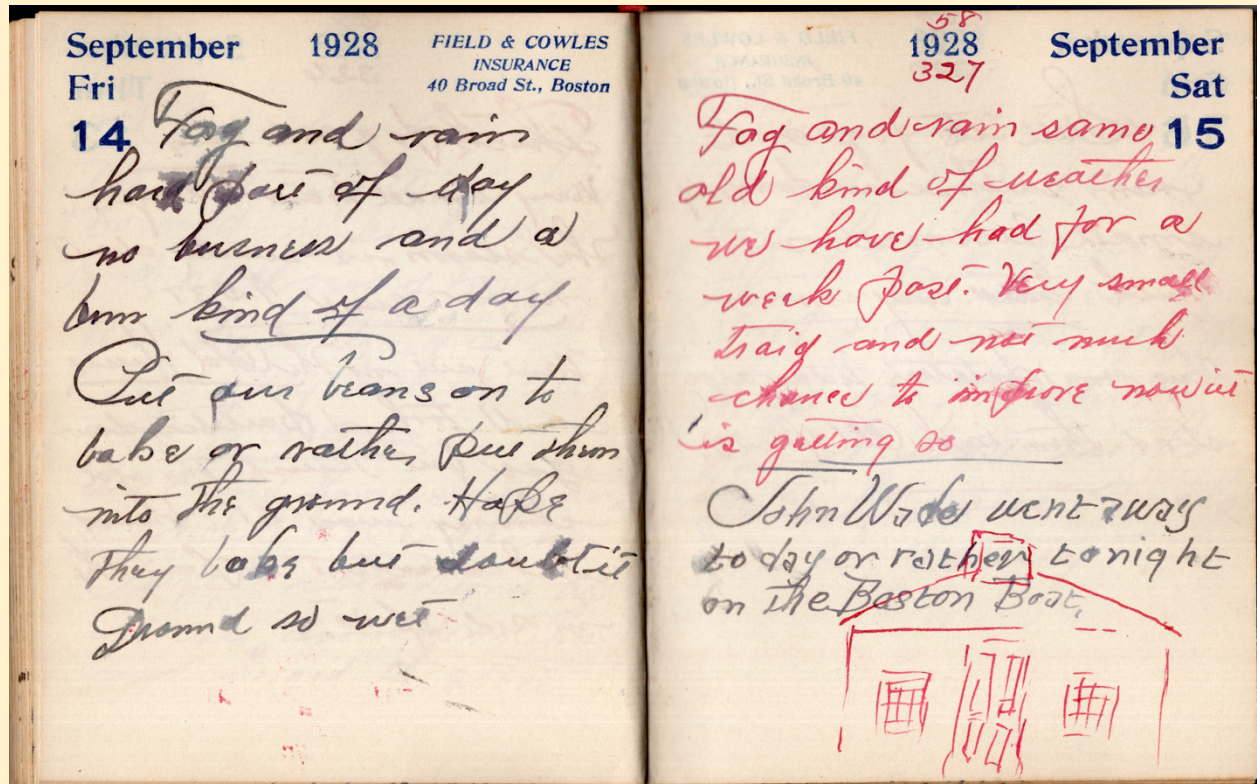 September 1928 FIELD & COWLES
INSURANCE
Fri 40 Broad St., Boston
14 Fog and rain
hard part of day
no business and a
bum kind of a day
Put our beans on to
bake or rather put them
into the ground. Hope
they bake but doubt it
Ground so wet
58
1928 September
327
Sat
15
Fog and rain same
old kind of weather
we have had for a
week past. Very small
traid and not much
chance to improve now it
is getting so
John Wade went away
today or rather tonight
on the Boston Boat.